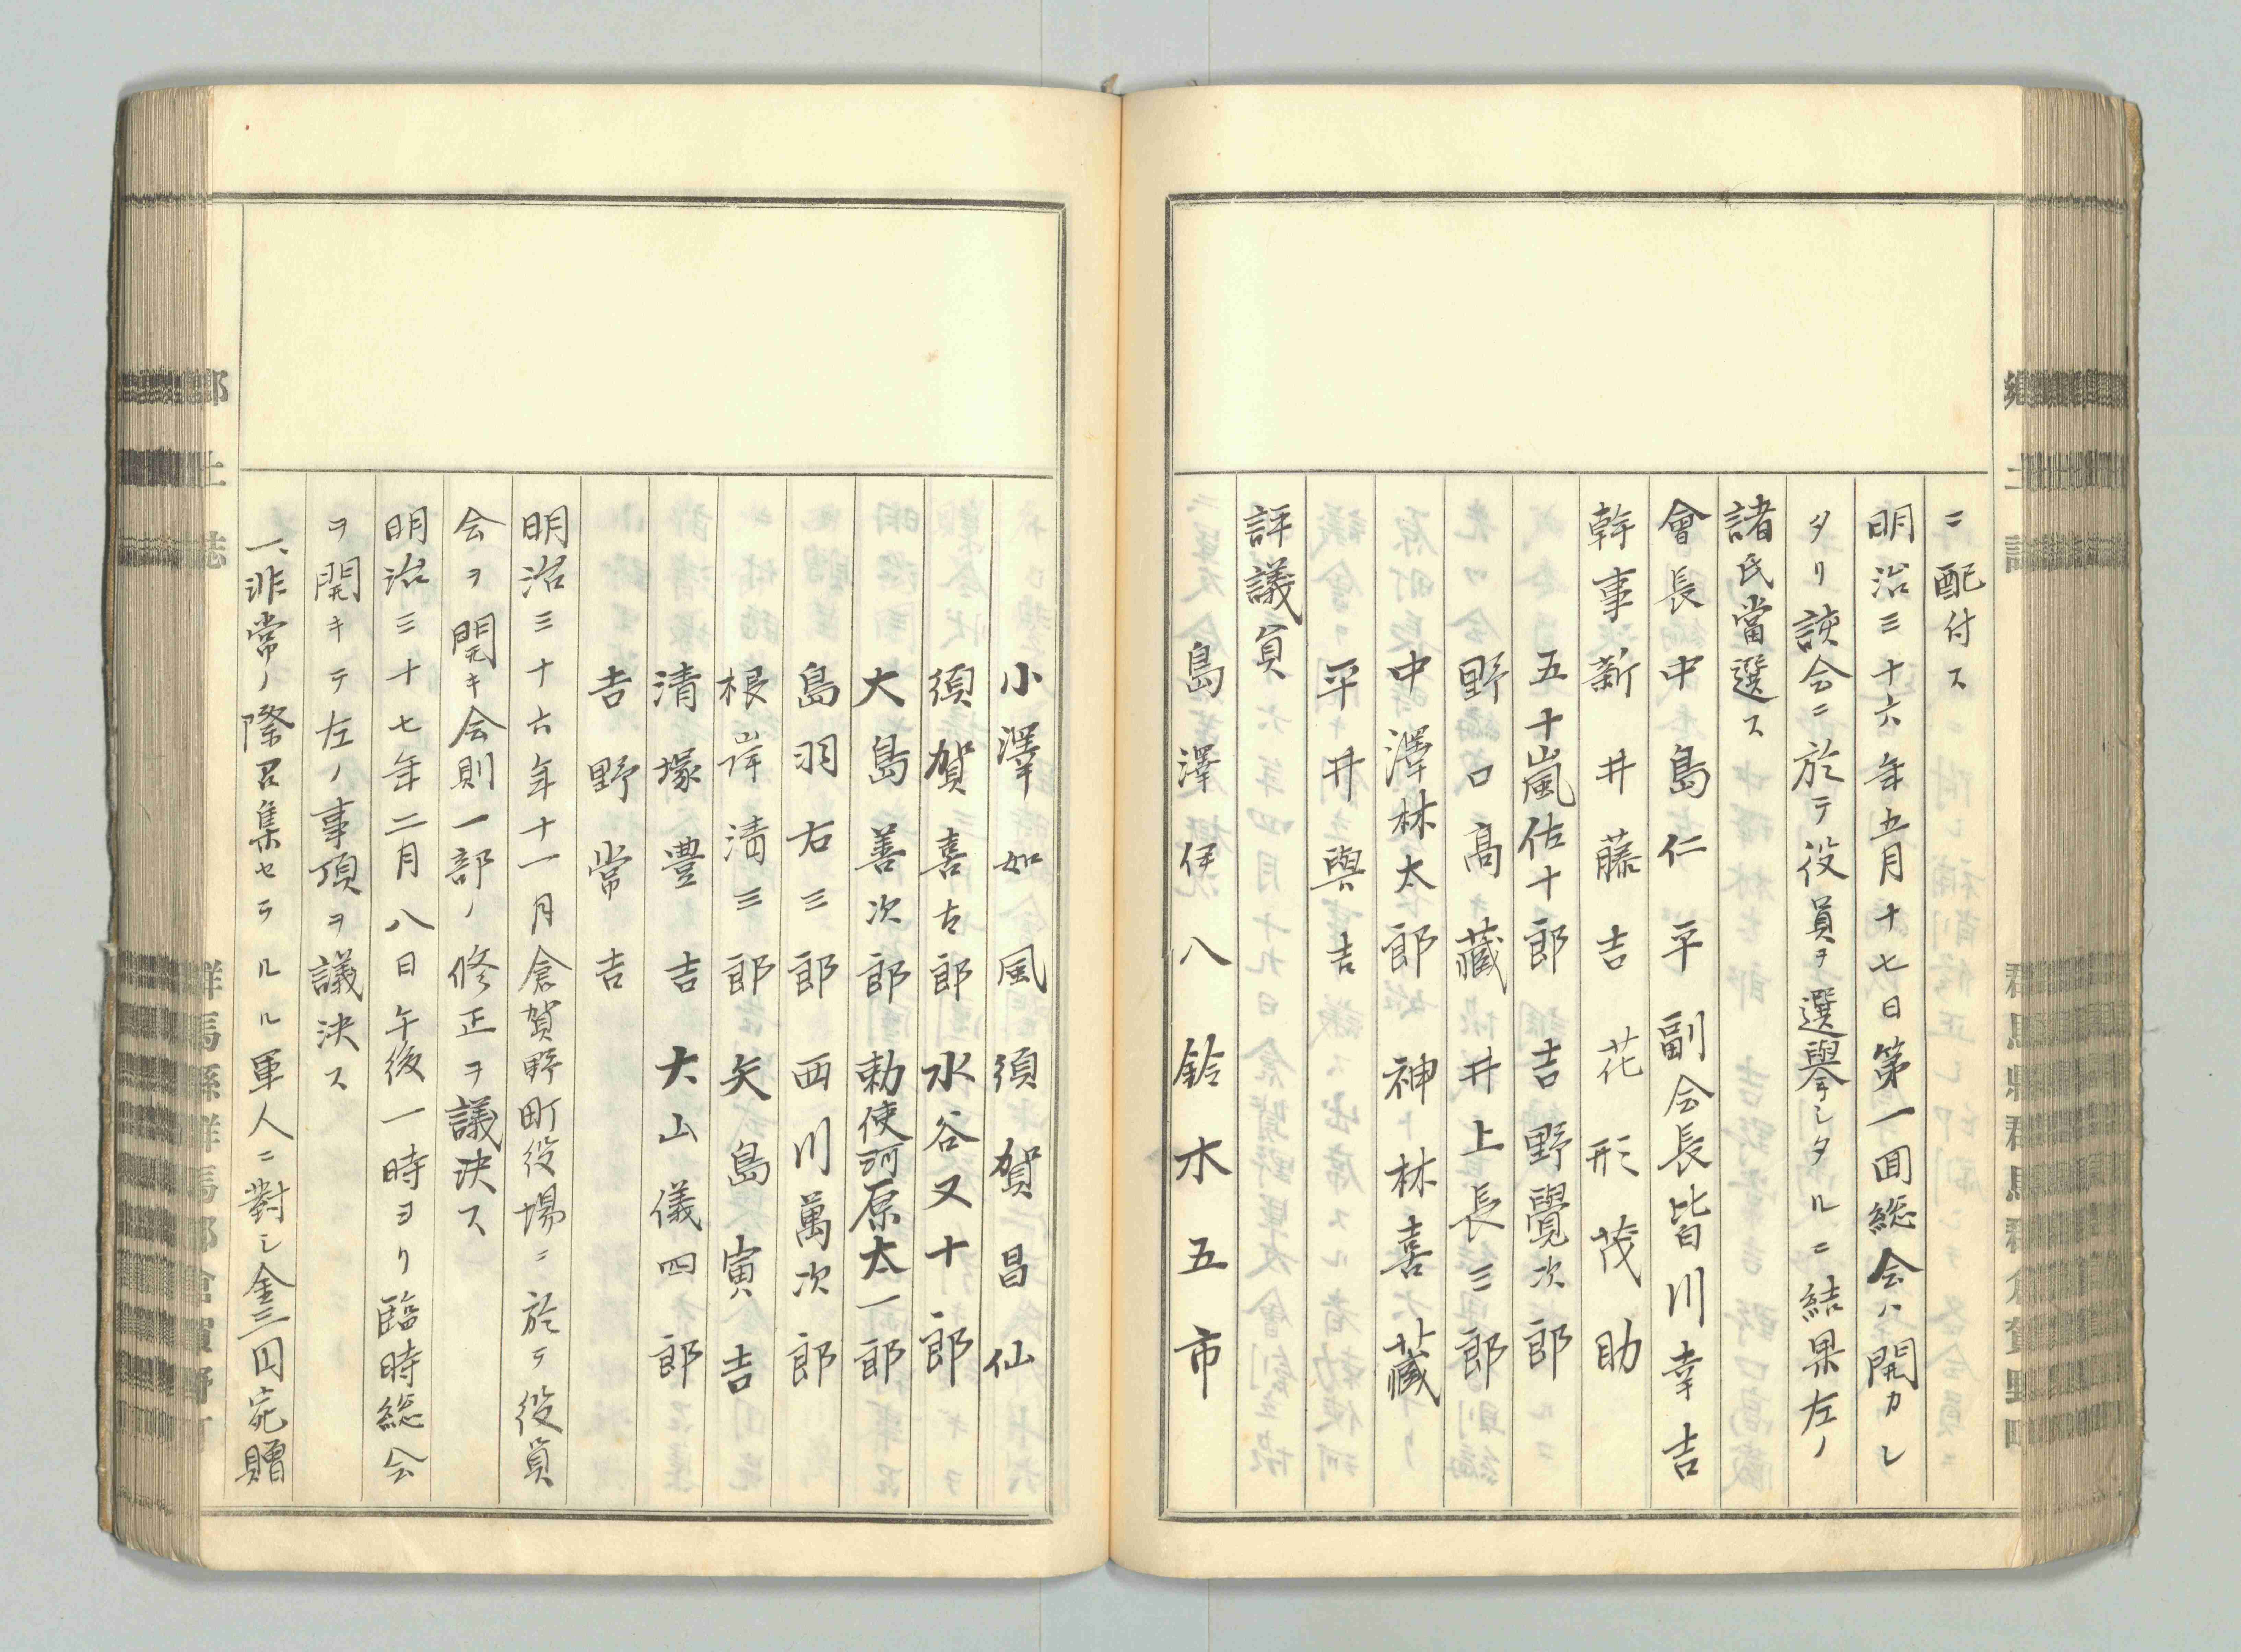 ニ配付ス
明治三十六年五月十七日第一囬総会ハ開カレ
タリ該会ニ於テ役員ヲ選擧シタルニ結果左ノ
諸氏當選ス
會長中島仁平 副会長皆川幸吉
幹事新井藤吉 花形茂助
五十嵐佐十郎 吉野覺次郎
野口高藏 井上長三郎
中澤林太郎 神林喜藏
平井與吉
評議員
島澤伊八 鈴木五市
小澤如風 須賀昌仙
須賀喜古郎 水谷又十郎
大島善次郎 勅使河原太一郎
島羽右三郎 西川萬次郎
根岸清三郎 矢島寅吉
清塚豊吉 大山儀四郎
吉野常吉
明治三十六年十一月倉賀野町役場ニ於テ役員
会ヲ開キ会則一部ノ修正ヲ議決ス
明治三十七年二月八日午後一時ヨリ臨時総会
ヲ開キテ左ノ事項ヲ議決ス
一、非常ノ際召集セラルル軍人ニ對シ金三円宛贈